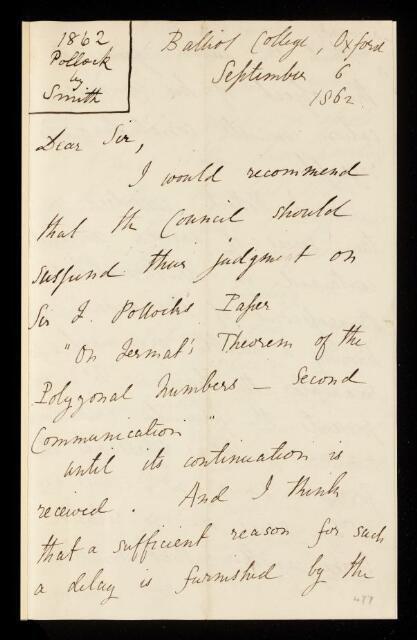 1862
Pollock
by
Smith
Balliol College, Oxford
September 6
1862.
Dear Sir,
I would recommend
that the Council should
suspend their judgment on
Sir F. Pollock's Paper
"On Fermat's Theorem of the
Polygonal Numbers — Second
Communication"
until its continuation is
received. And I think
that a sufficient reason for such
a delay is furnished by the
477